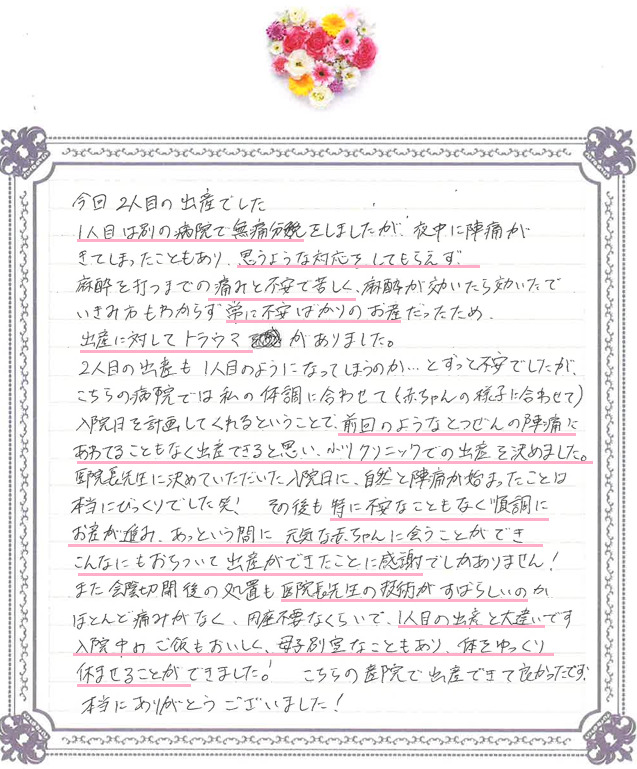 今回 2人目の出産でした
1人目は別の病院で無痛分娩をしましたが、夜中に陣痛が
きてしまったこともあり、思うような対応をしてもらえず、
麻酔を打つまでの痛みと不安で苦しく、麻酔が効いたら効いたで
いきみ方もわからず常に不安ばかりのお産だったため、
出産に対してトラウマがありました。
2人目の出産も1人目のようになってしまうのか…とずっと不安でしたが、
こちらの病院では私の体調に合わせて(赤ちゃんの様子に合わせて)
入院日を計画してくれるということで、前回のようなとつぜんの陣痛に
あわてることもなく出産できると思い、小川クリニックでの出産を決めました。
医院長先生に決めていただいた入院日に、自然と陣痛が始まったことは
本当にびっくりでした笑! その後も特に不安なこともなく順調に
お産が進み、あっという間に 元気な赤ちゃんに会うことができ
こんなにもおちついて出産ができたことに感謝でしかありません!
また会陰切開後の処置も医院長先生の技術がすばらしいのか
ほとんど痛みがなく、円座不要なくらいで、1人目の出産と大違いです
入院中のご飯もおいしく、母子別室なこともあり、体をゆっくり
休ませることができました! こちらの産院で出産できて良かったです。
本当にありがとうございました!